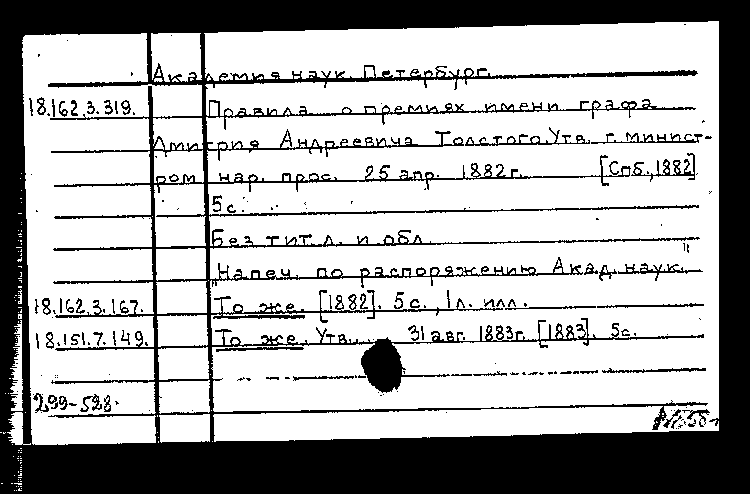 Академия наук. Петербург.
18.162.3.319. Правила о премиях имени графа
Дмитрия Андреевича Толстого. Утв. г. минист-
ром нар. прос. 25 апр. 1882 г. [Спб., 1882]
5 с.
Без тит. л. и обл.
"Напеч. по распоряжению Акад. наук."
18.162.3.167. То же. [1882]. 5 с., 1 л. илл.
18.151.7.149. То же. Утв... 31 авг. 1883 г. [1883]. 5 с.
299-528.